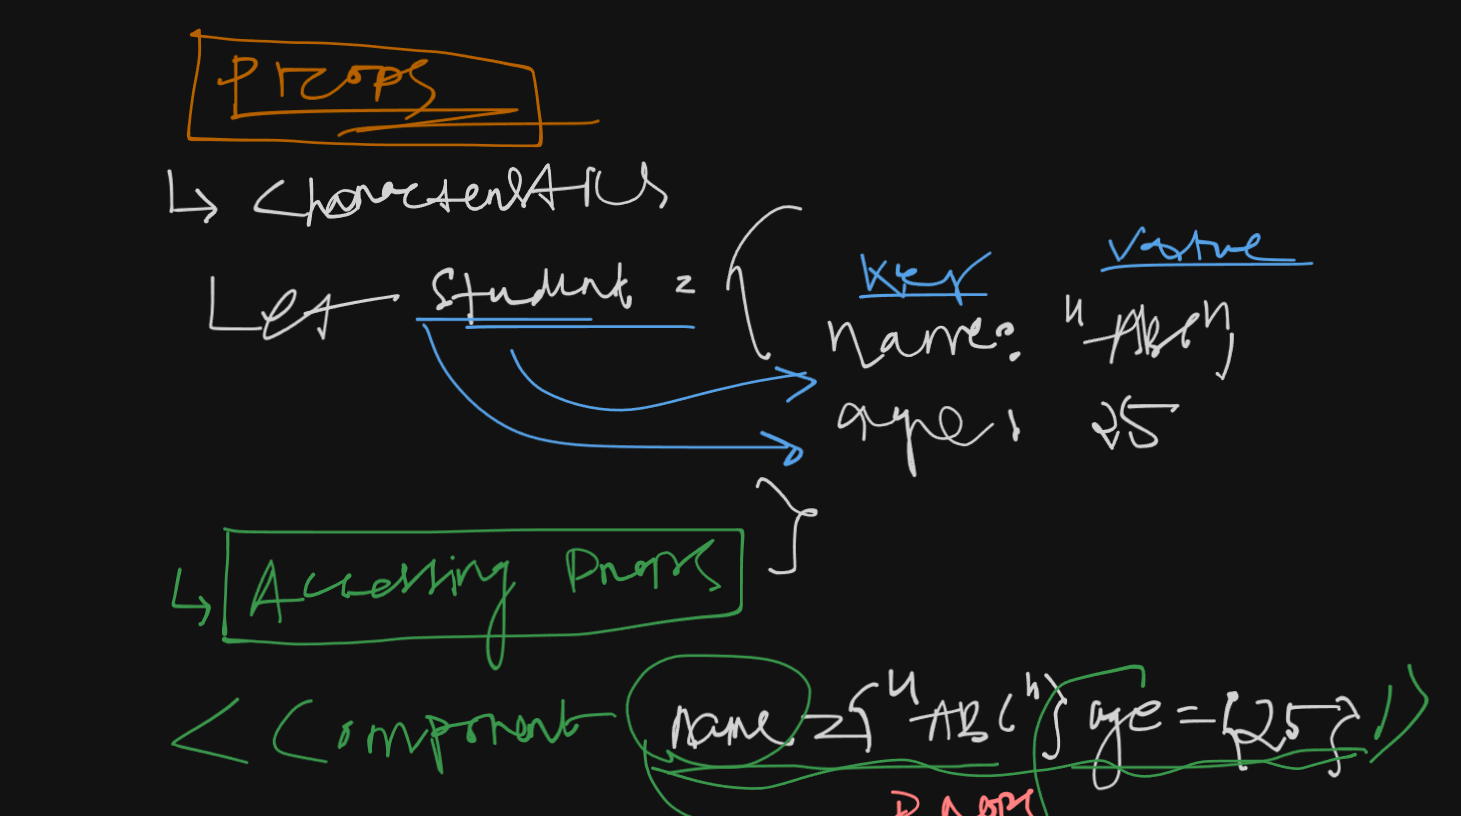 Props
↳ Characteristics
Let student = {
Key Value
name: "ABC",
age: 25
}
↳ Accessing Props
<Component name={"ABC"} age={25} />
Props